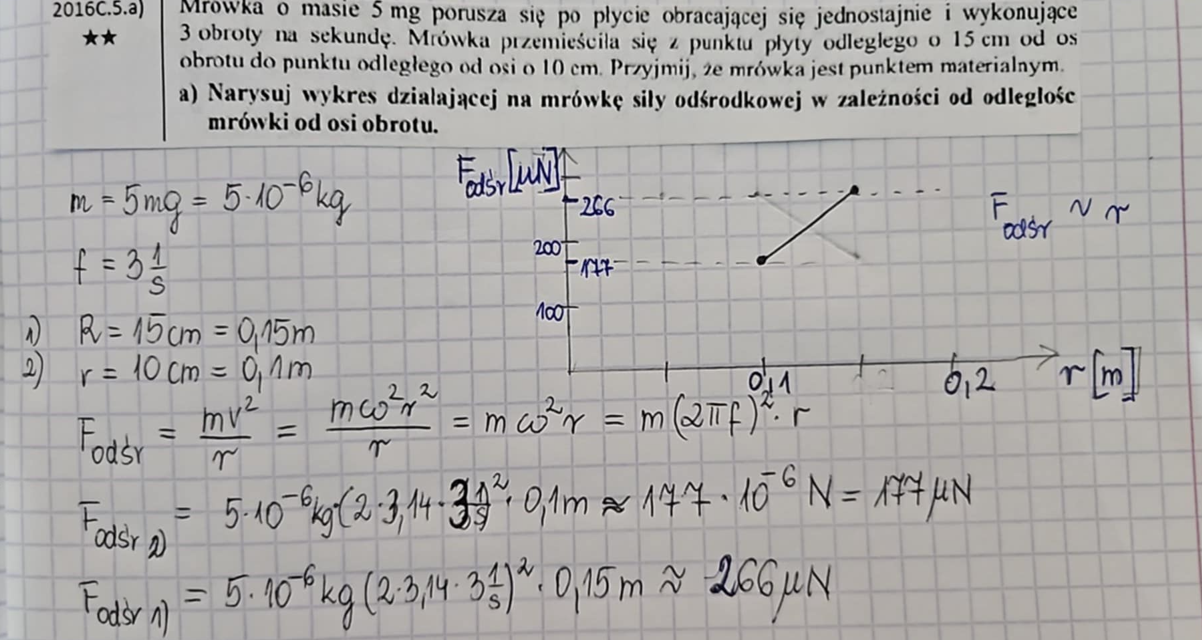 2016C.5.a)
★★
Mrówka o masie 5 mg porusza się po płycie obracającej się jednostajnie i wykonujące
3 obroty na sekundę. Mrówka przemieściła się z punktu płyty odległego o 15 cm od os
obrotu do punktu odległego od osi o 10 cm. Przyjmij, że mrówka jest punktem materialnym.
a) Narysuj wykres działającej na mrówkę siły odśrodkowej w zależności od odległośc
mrówki od osi obrotu.
m = 5mg = 5·10⁻⁶ kg
f = 3 1/s
1) R = 15cm = 0,15m
2) r = 10cm = 0,1m
F odśr [µN]
266
200
177
100
0,1
0,2
r [m]
F odśr ~ r
F odśr = mv²/r = mω²r²/r = mω²r = m(2πf)²· r
F odśr 2) = 5·10⁻⁶ kg (2·3,14·3 1/s)²· 0,1m ≈ 177·10⁻⁶ N = 177 µN
F odśr 1) = 5·10⁻⁶ kg (2·3,14·3 1/s)²· 0,15m ≈ 266 µN